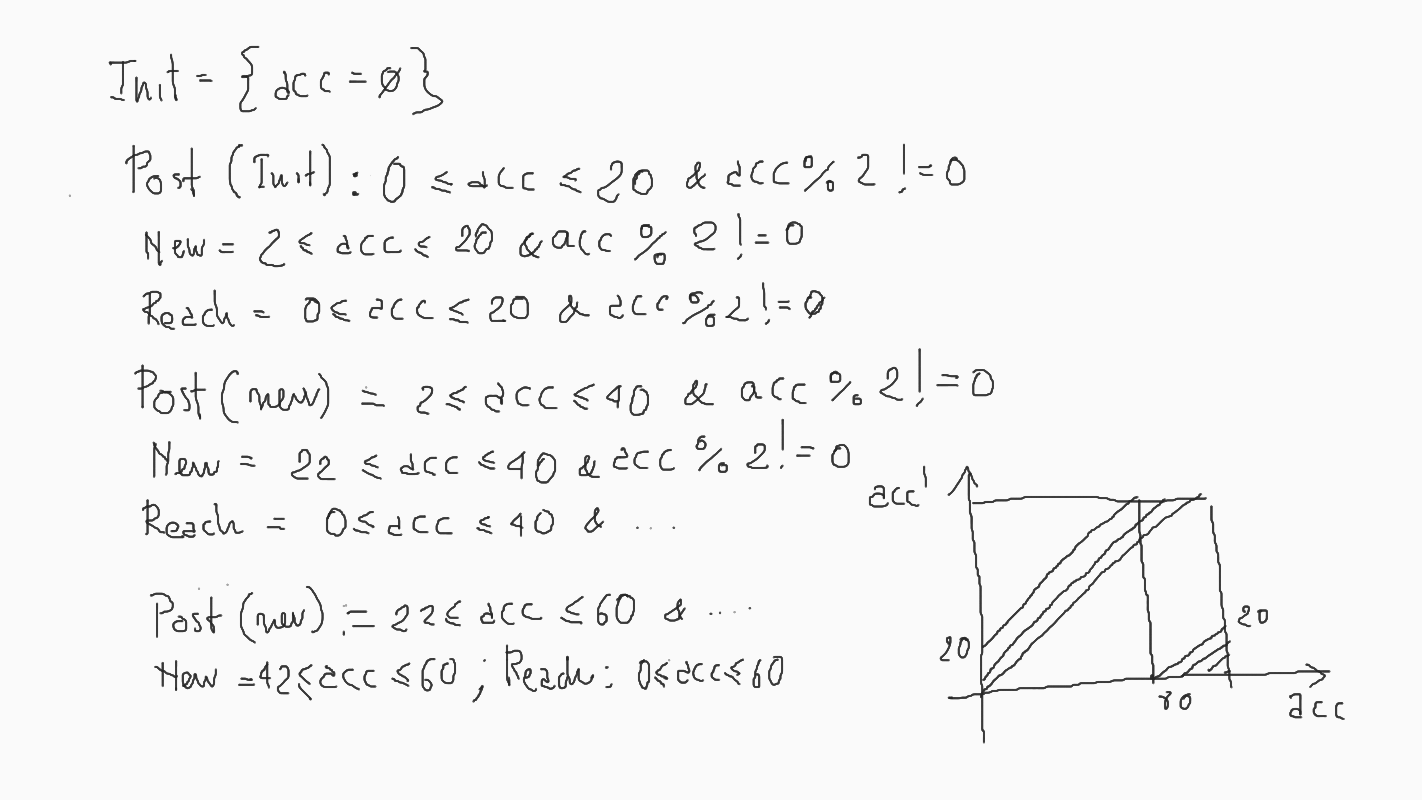 Init = {acc = 0}
Post (Init) : 0 ≤ acc ≤ 20 & acc % 2 != 0
New = 2 ≤ acc ≤ 20 & acc % 2 != 0
Reach = 0 ≤ acc ≤ 20 & acc % 2 != 0
Post (new) = 2 ≤ acc ≤ 40 & acc % 2 != 0
New = 22 ≤ acc ≤ 40 & acc % 2 != 0
Reach = 0 ≤ acc ≤ 40 & ...
Post (new) := 22 ≤ acc ≤ 60 & ....
New = 42 ≤ acc ≤ 60 ; Reach : 0 ≤ acc ≤ 60
acc'
20
20
acc